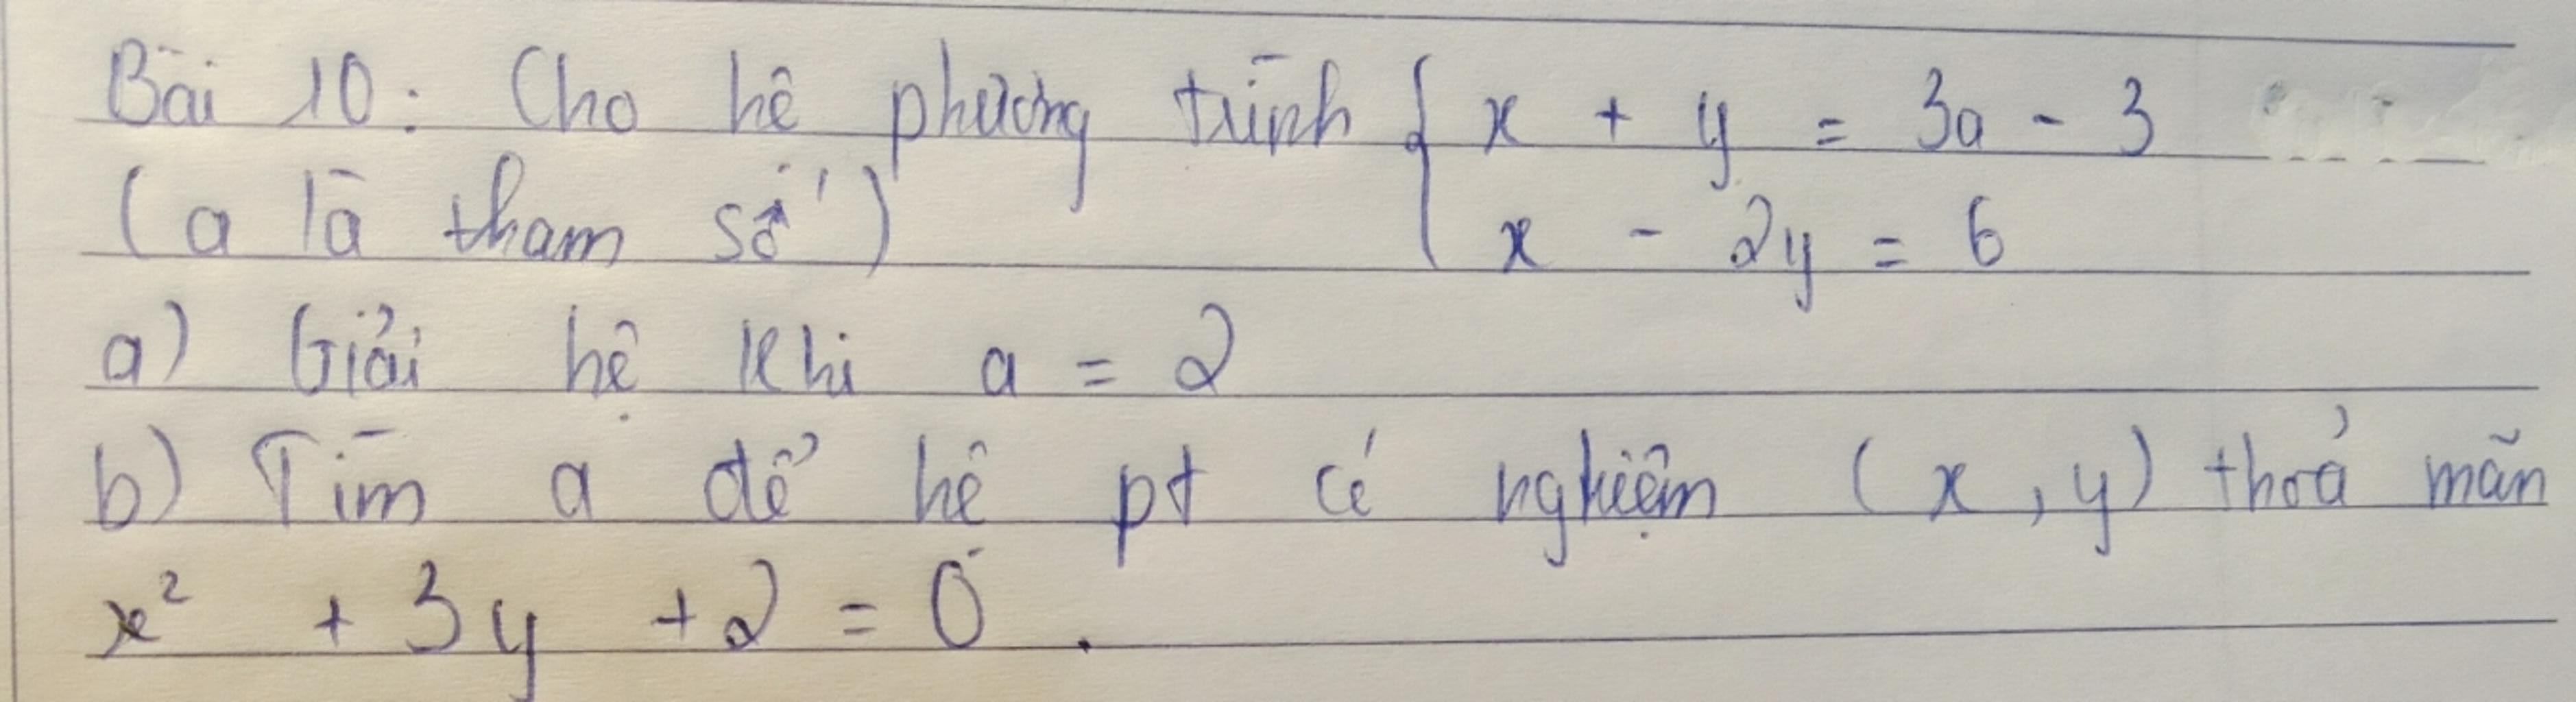 Bài 10: Cho hệ phương trình { x + y = 3a - 3
(a là tham số) x - 2y = 6
a) Giải hệ khi a = 2
b) Tìm a để hệ pt có nghiệm (x, y) thoả mãn
x² + 3y + 2 = 0.